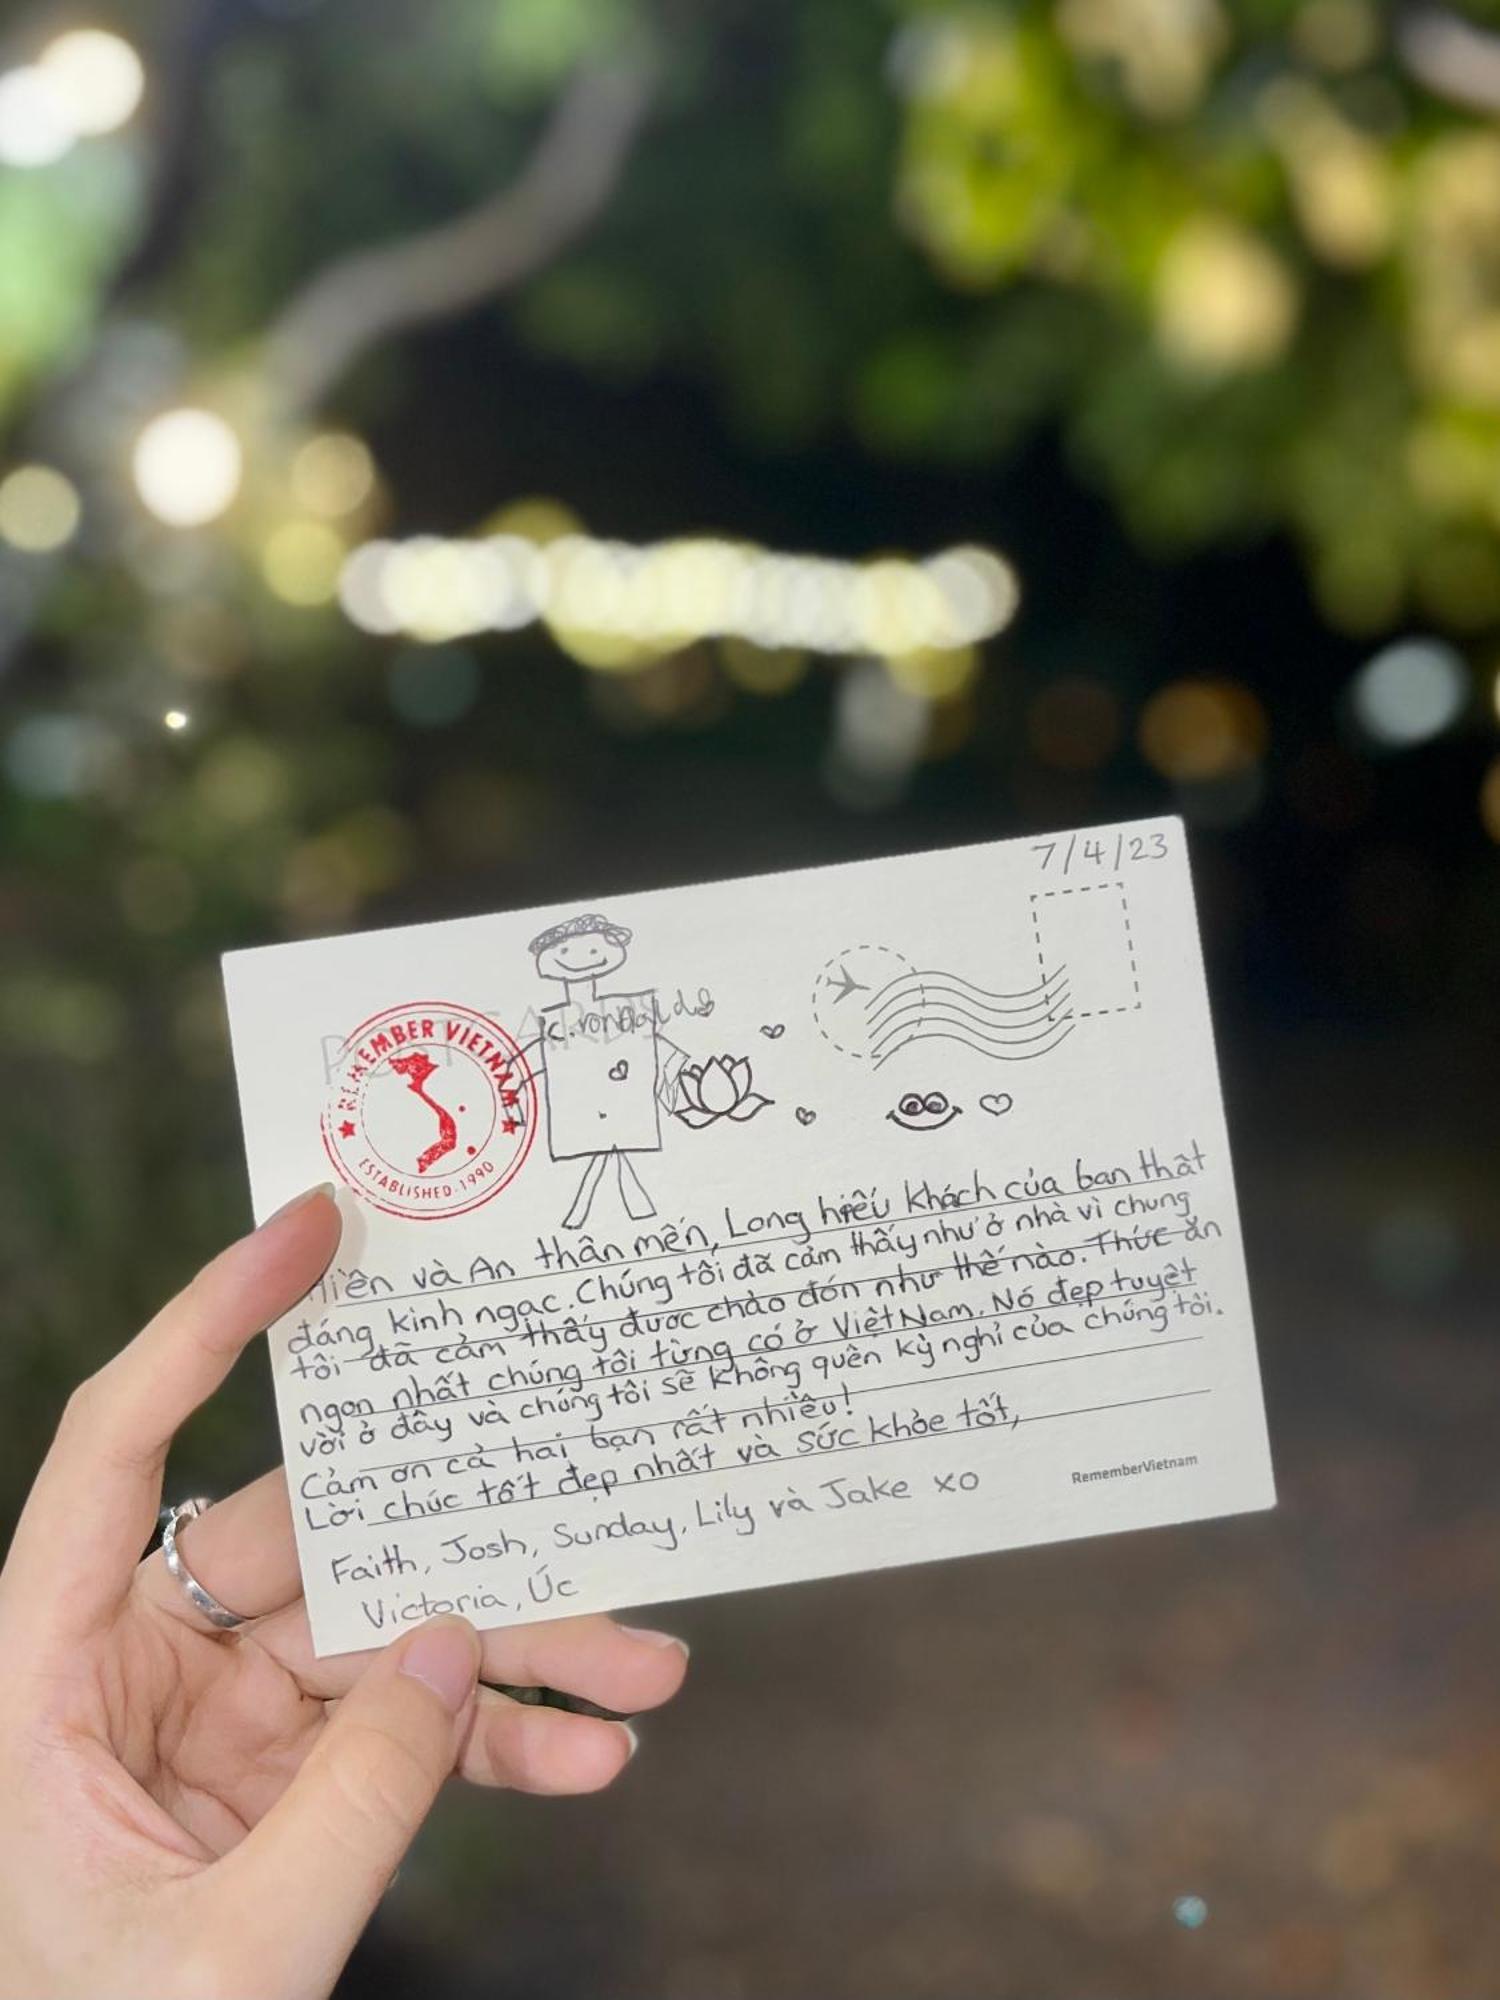 7/4/23
POSTCARDS
c.ronaldo
REMEMBER VIETNAM
ESTABLISHED.1990
và An thân mến, Long hiếu khách của bạn thật
đáng kinh ngạc. Chúng tôi đã cảm thấy như ở nhà vì chung
tôi đã cảm thấy được chào đón như thế nào. Thức ăn
ngon nhất chúng tôi từng có ở Việt Nam. Nó đẹp tuyệt
vời ở đây và chúng tôi sẽ không quên kỳ nghỉ của chúng tôi.
Cảm ơn cả hai bạn rất nhiều!
Lời chúc tốt đẹp nhất và sức khỏe tốt,
Faith, Josh, Sunday, Lily và Jake xo
Victoria, Úc
RememberVietnam